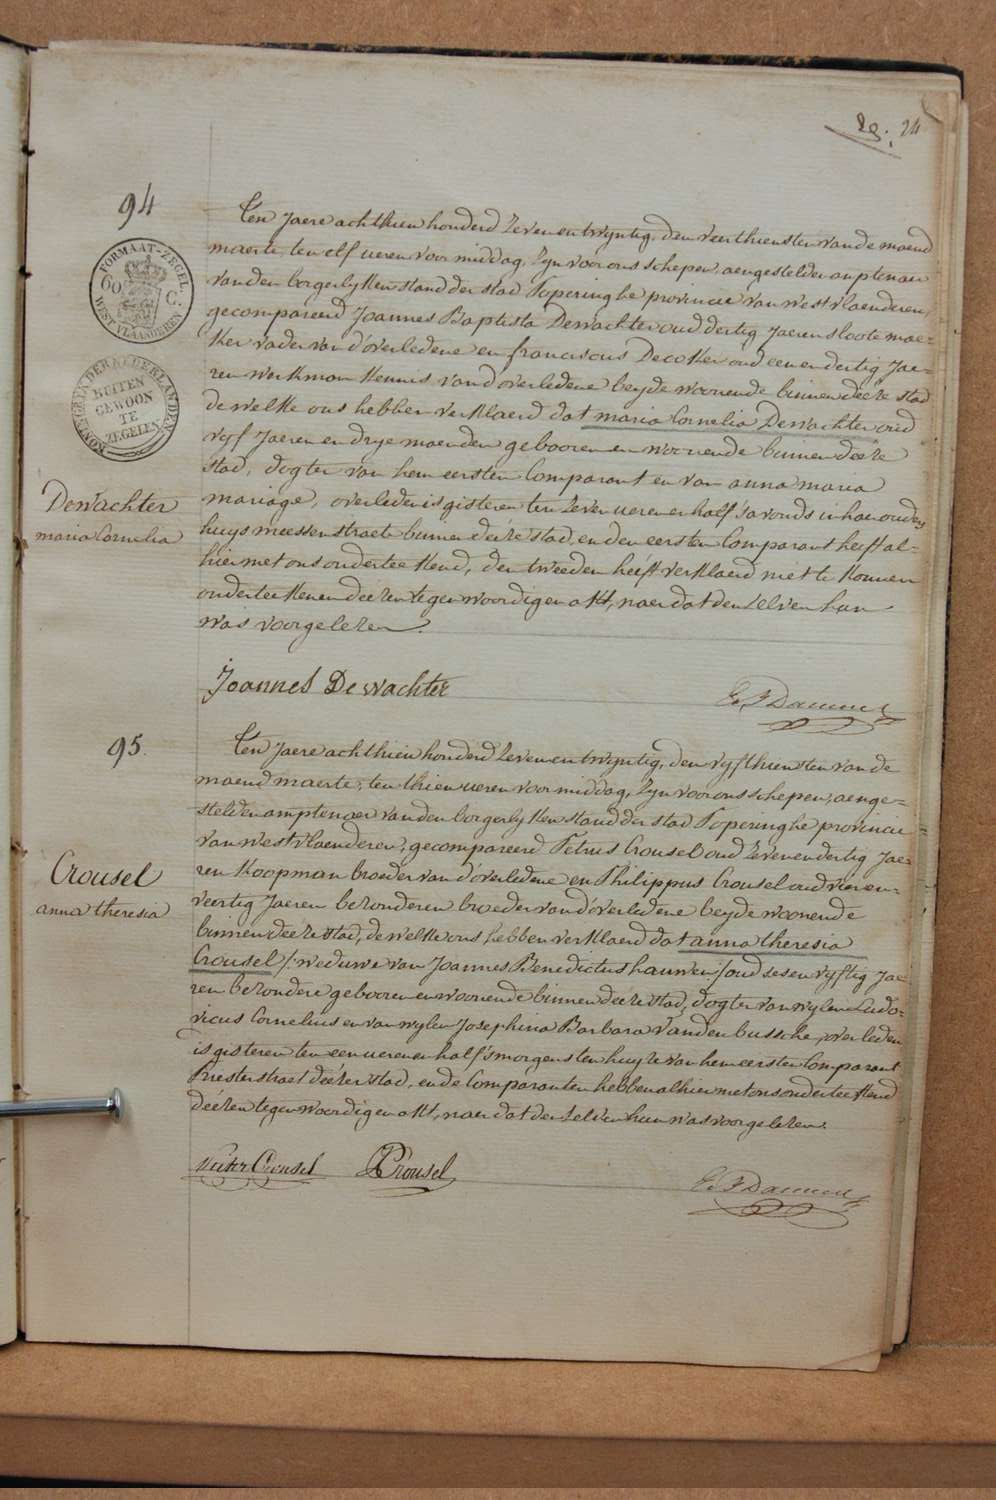 29. 24
94
FORMAAT-ZEGEL
60 C.
WEST VLAANDEREN
KONINGRYK DER NEDERLANDEN
BUITEN
GEWOON
TE
ZEGELEN
Dewachter
maria Cornelia
Ten Jaere achthien honderd zeven en twyntig, den veerthiensten van de maend
maerte, ten elf ueren voormiddag, zyn voor ons schepen, aengestelden amptenaer
van den borgerlyken stand der stad Poperinghe provincie van westvlaenderen,
gecompareerd Joannes Baptista Dewachter oud dertig Jaeren sloote mae-
ker vader van d'overledene en franciscus Decoker oud een en dertig Jae-
ren werkman kennis van d'overledene beyde woonende binnen deéze stad
de welke ons hebben verklaerd dat maria Cornelia Dewachter oud
vyf Jaeren en drye maenden gebooren en woonende binnen deéze
stad, dogter van hem eersten Comparant en van anna maria
mariage, overleden is gisteren ten zeven ueren en half s'avonds in haer ouders
huys meessenstraete binnen deéze stad, en den eersten Comparant heeft al-
hier met ons onderteekend, den tweeden heéft verklaerd niet te konnen
onderteekenen deézen tegenwoordigen akt, naer dat den zelven hun
was voorgelezen.
Joannes De wachter
95.
Crousel
anna theresia
Ten Jaere achthien honderd zeven en twyntig, den vyfthiensten van de
maend maerte, ten thien ueren voormiddag, zyn voor ons schepen, aenge-
stelden amptenaer van den borgerlyken stand der stad Poperinghe provincie
van westvlaenderen, gecompareerd Petrus Crousel oud zeven en dertig Jae-
ren koopman broeder van d'overledene en Philippus Crousel oud vier en-
veertig Jaeren bezonderen broeder van d'overledene beyde woonende
binnen deéze stad, de welke ons hebben verklaerd dat anna theresia
Crousel /: weduwe van Joannes Benedictus hauwen :/ oud ses en vyftig Jae-
ren bezondere gebooren en woonende binnen deéze stad, dogter van wylen Ludo-
vicus Cornelius en van wylen Josephina Barbara Vandenbussche, overleden
is gisteren ten een ueren en half s'morgens ten huyze van hem eersten Comparant
Priesterstraet deézer stad, en de Comparanten hebben alhier met ons onderteekend
deézen tegenwoordigen akt, naer dat den zelven hun was voorgelezen.
Pieter Crousel P Crousel